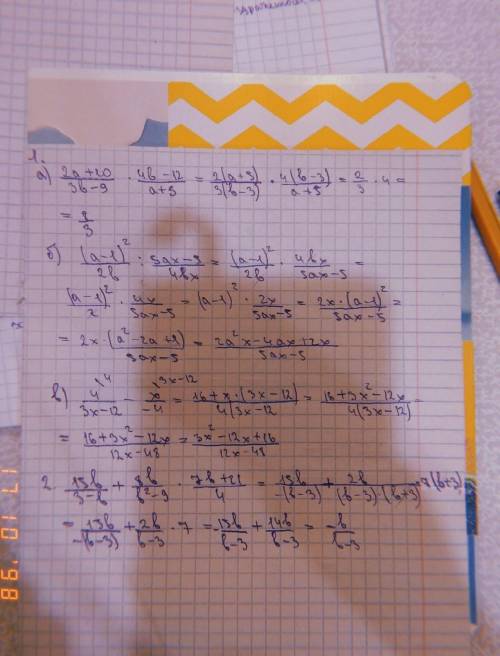 1.
а) (2a+20)/(3b-9) · (4b-12)/(a+5) = 2(a+5)/3(b-3) · 4(b-3)/(a+5) = 2/3 · 4 =
= 8/3
б) (a-1)²/2b : (5ax-5)/4bx = (a-1)²/2b · 4bx/(5ax-5) =
(a-1)²/2 · 4x/(5ax-5) = (a-1)² · 2x/(5ax-5) = 2x·(a-1)²/(5ax-5) =
= 2x·(a²-2a+1)/(5ax-5) = (2a²x-4ax+2x)/(5ax-5)
в) 4\4/(3x-12) - x\3x-12/-4 = (16+x·(3x-12))/4(3x-12) = (16+3x²-12x)/4(3x-12) =
= (16+3x²-12x)/(12x-48) = (3x²-12x+16)/(12x-48)
2. 15b/(3-b) + 8b/(b²-9) · (7b+21)/4 = 15b/-(b-3) + 2b/(b-3)·(b+3) · 7(b+3)
= -15b/-(b-3) + 2b/(b-3) · 7 = -15b/(b-3) + 14b/(b-3) = -b/(b-3)
17 10 '98